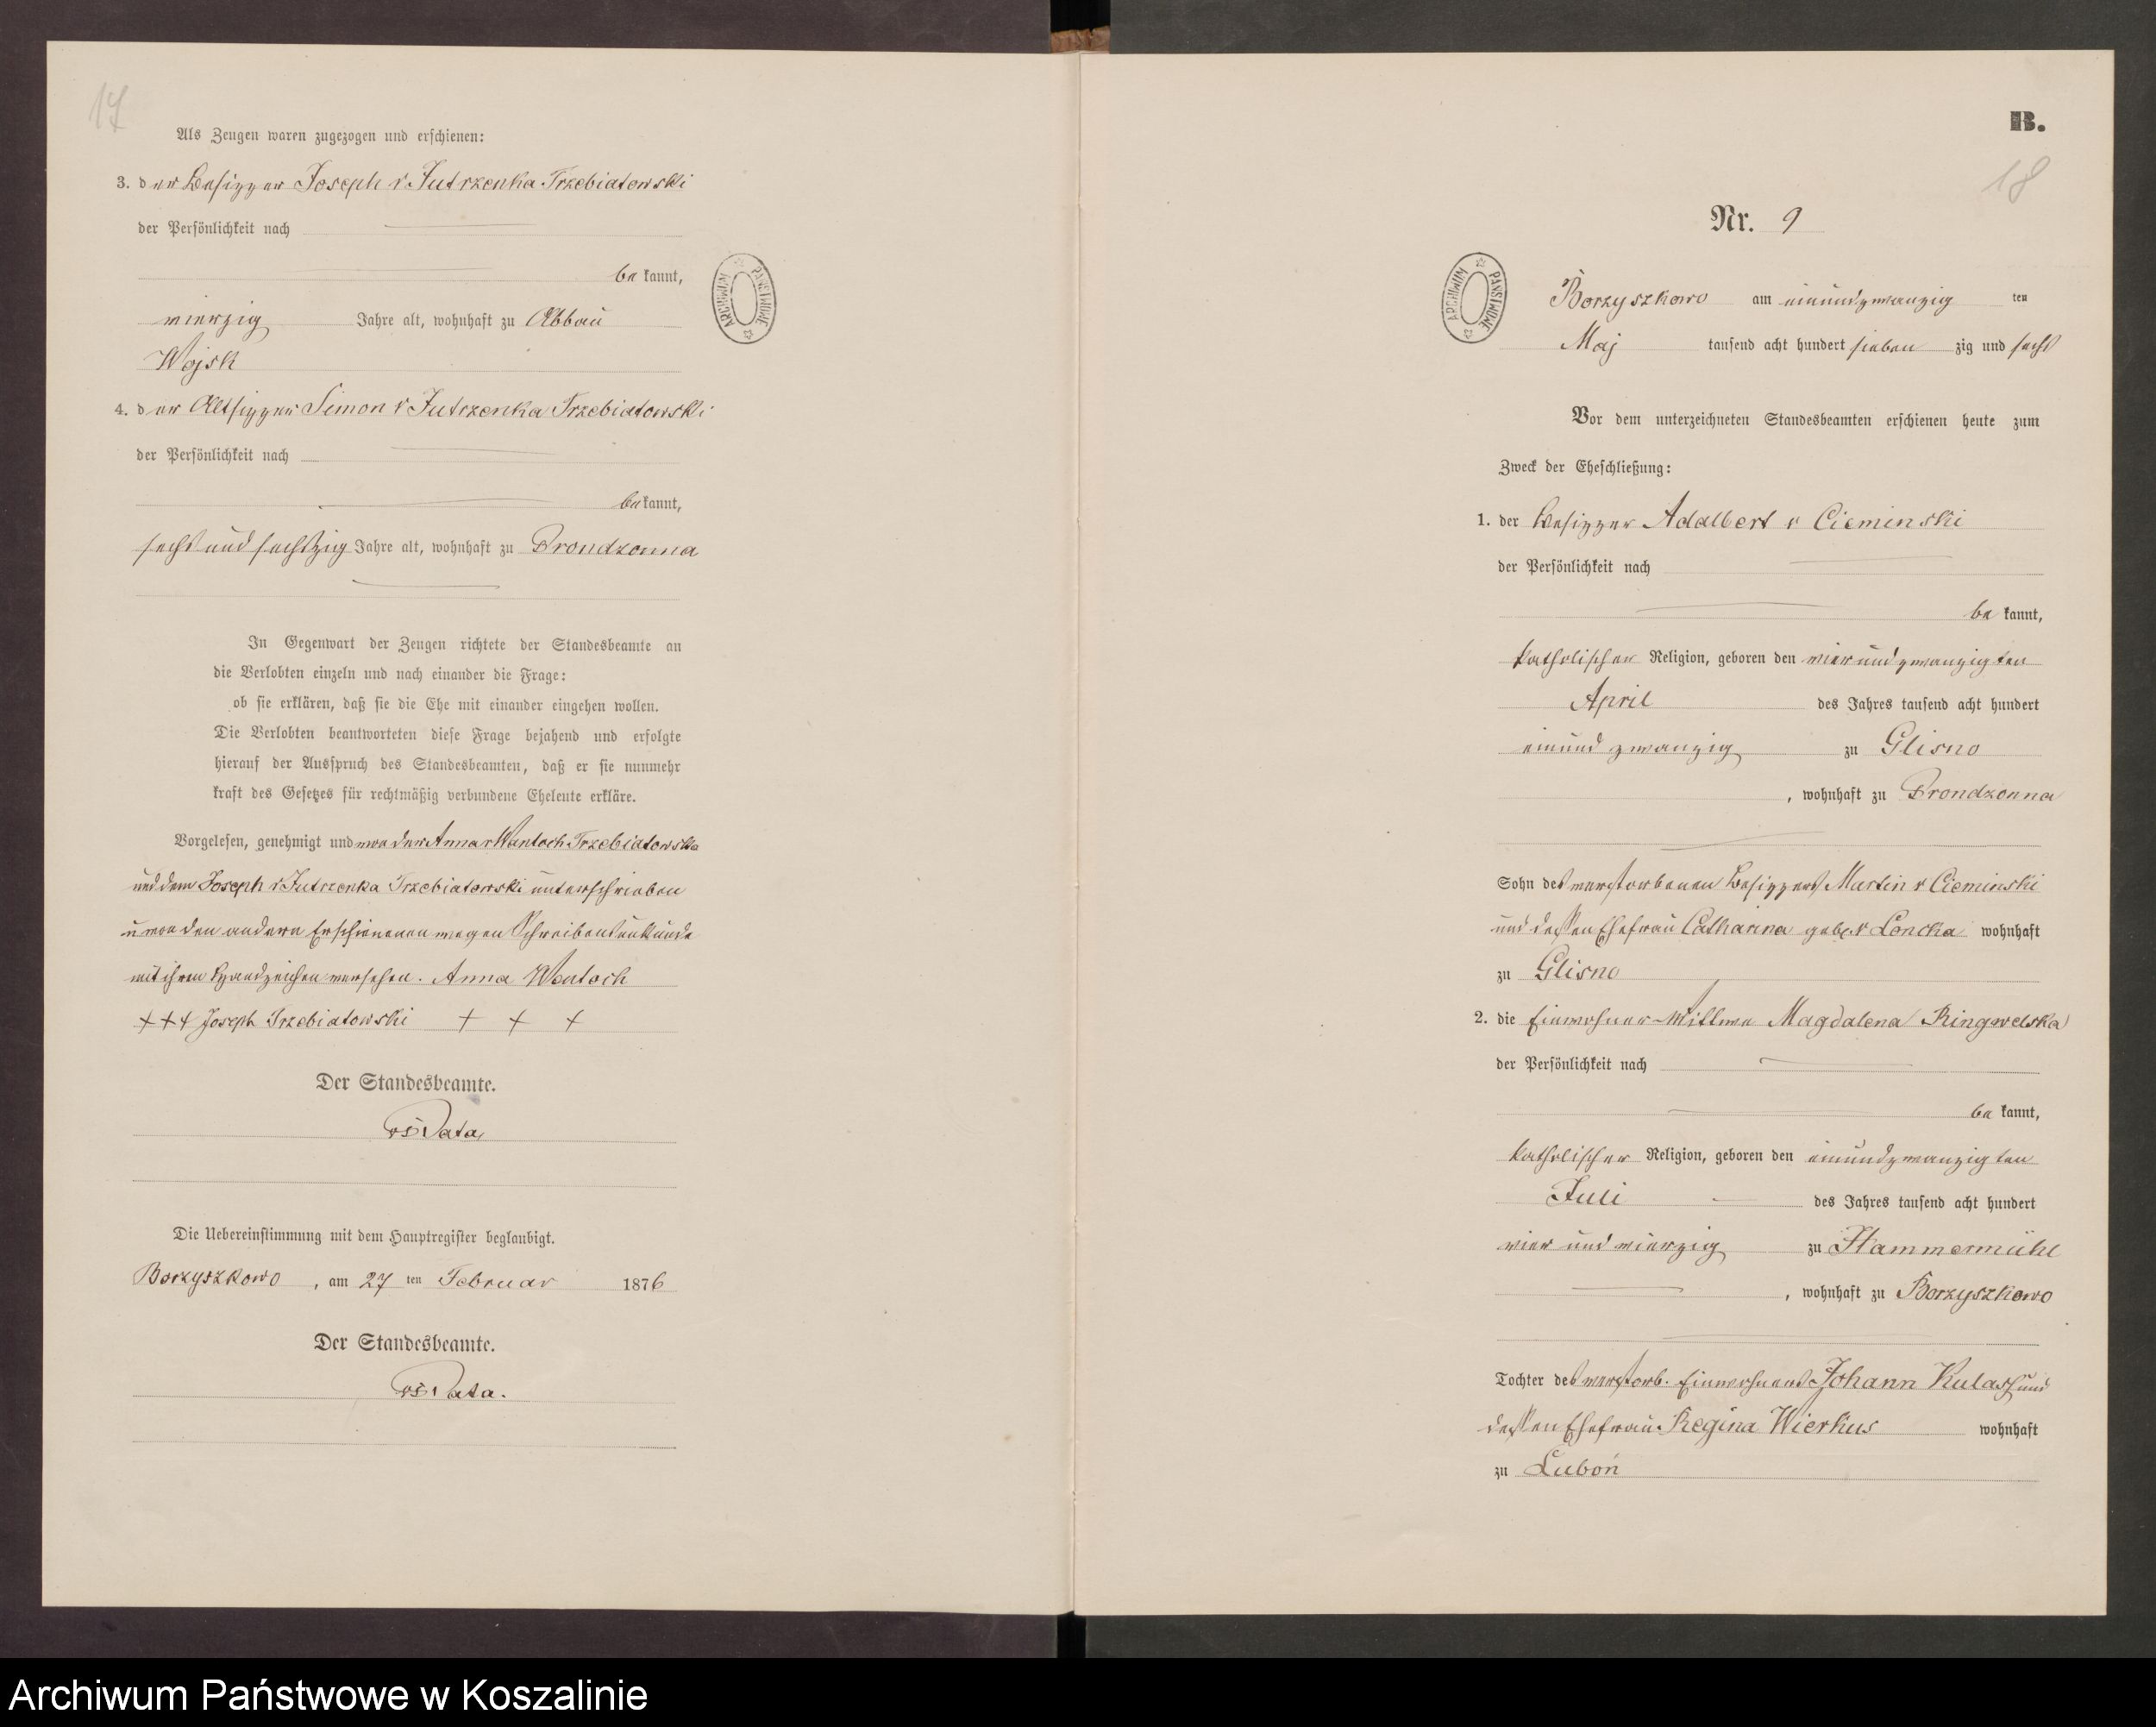 17
Als Zeugen waren zugezogen und erschienen:
3. der Besitzer Joseph v Jutrzenka Trzebiatowski
der Persönlichkeit nach
be kannt,
vierzig Jahre alt, wohnhaft zu Abbau
Wojsk
4. der Altsitzer Simon v Jutrzenka Trzebiatowski
der Persönlichkeit nach
bekannt,
sechs und sechszig Jahre alt, wohnhaft zu Prondzonna
In Gegenwart der Zeugen richtete der Standesbeamte an
die Verlobten einzeln und nach einander die Frage:
ob sie erklären, daß sie die Ehe mit einander eingehen wollen.
Die Verlobten beantworteten diese Frage bejahend und erfolgte
hierauf der Ausspruch des Standesbeamten, daß er sie nunmehr
kraft des Gesetzes für rechtmäßig verbundene Eheleute erkläre.
Vorgelesen, genehmigt und von der Anna v Wantoch Trzebiatowska
und dem Joseph v Jutrzenka Trzebiatowski unterschrieben
u von den andern Erschienenen wegen Schreibensunkunde
mit ihren Handzeichen versehen. Anna Wantoch
+++ Joseph Trzebiatowski + + +
Der Standesbeamte.
Die Uebereinstimmung mit dem Hauptregister beglaubigt.
Borzyszkowo, am 27 ten Februar 1876
Der Standesbeamte.
ARCHIWUM PAŃSTWOWE
B.
18
Nr. 9
ARCHIWUM PAŃSTWOWE
Borzyszkowo am einundzwanzig ten
Maj tausend acht hundert sieben zig und sechs
Vor dem unterzeichneten Standesbeamten erschienen heute zum
Zweck der Eheschließung:
1. der Besitzer Adalbert v Cieminski
der Persönlichkeit nach
be kannt,
katholischer Religion, geboren den vierundzwanzigten
April des Jahres tausend acht hundert
einund zwanzig zu Glisno
, wohnhaft zu Prondzonna
Sohn des verstorbenen Besitzers Martin v Cieminski
und dessen Ehefrau Catharina geb. v Loncka wohnhaft
zu Glisno
2. die Einwohner-Wittwe Magdalena Ringwelska
der Persönlichkeit nach
be kannt,
katholischer Religion, geboren den einundzwanzigten
Juli des Jahres tausend acht hundert
vier und vierzig zu Hammermühl
, wohnhaft zu Borzyszkowo
Tochter des verstorb. Einwohners Johann Kulas und
dessen Ehefrau Regina Wierkus wohnhaft
zu Luboń
Archiwum Państwowe w Koszalinie